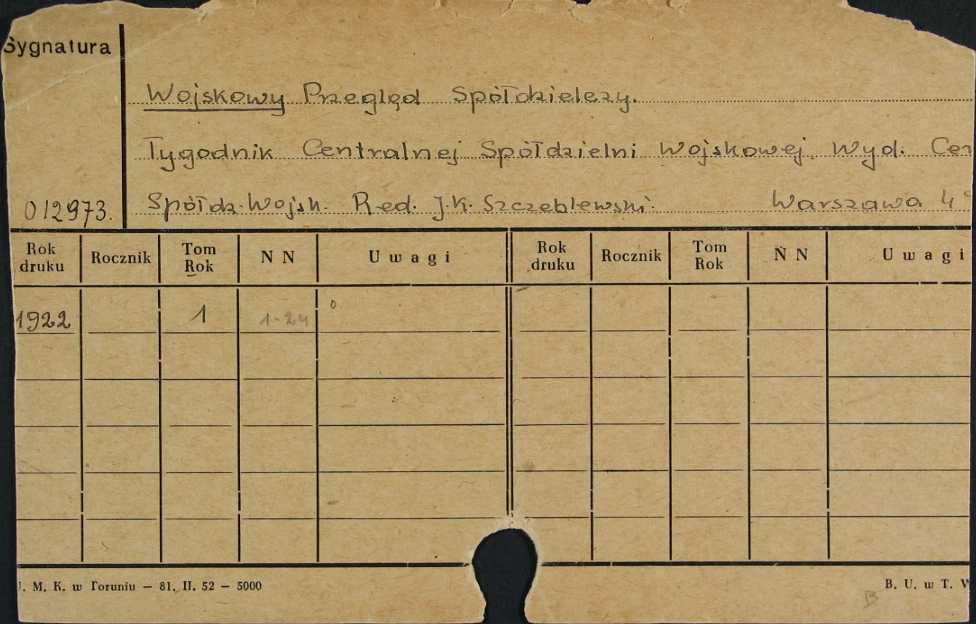 Sygnatura
Wojskowy Przegląd Spółdzielczy.
Tygodnik Centralnej Spółdzielni Wojskowej. Wyd. Cen
012973.
Spółdz. Wojsk. Red. J.K. Szczeblewski. Warszawa 4°
Rok druku Rocznik Tom Rok N N Uwagi Rok druku Rocznik Tom Rok N N Uwagi
1922 1 1-24
. M. K. w Toruniu — 81. II. 52 — 5000
B. U. w T. V
B